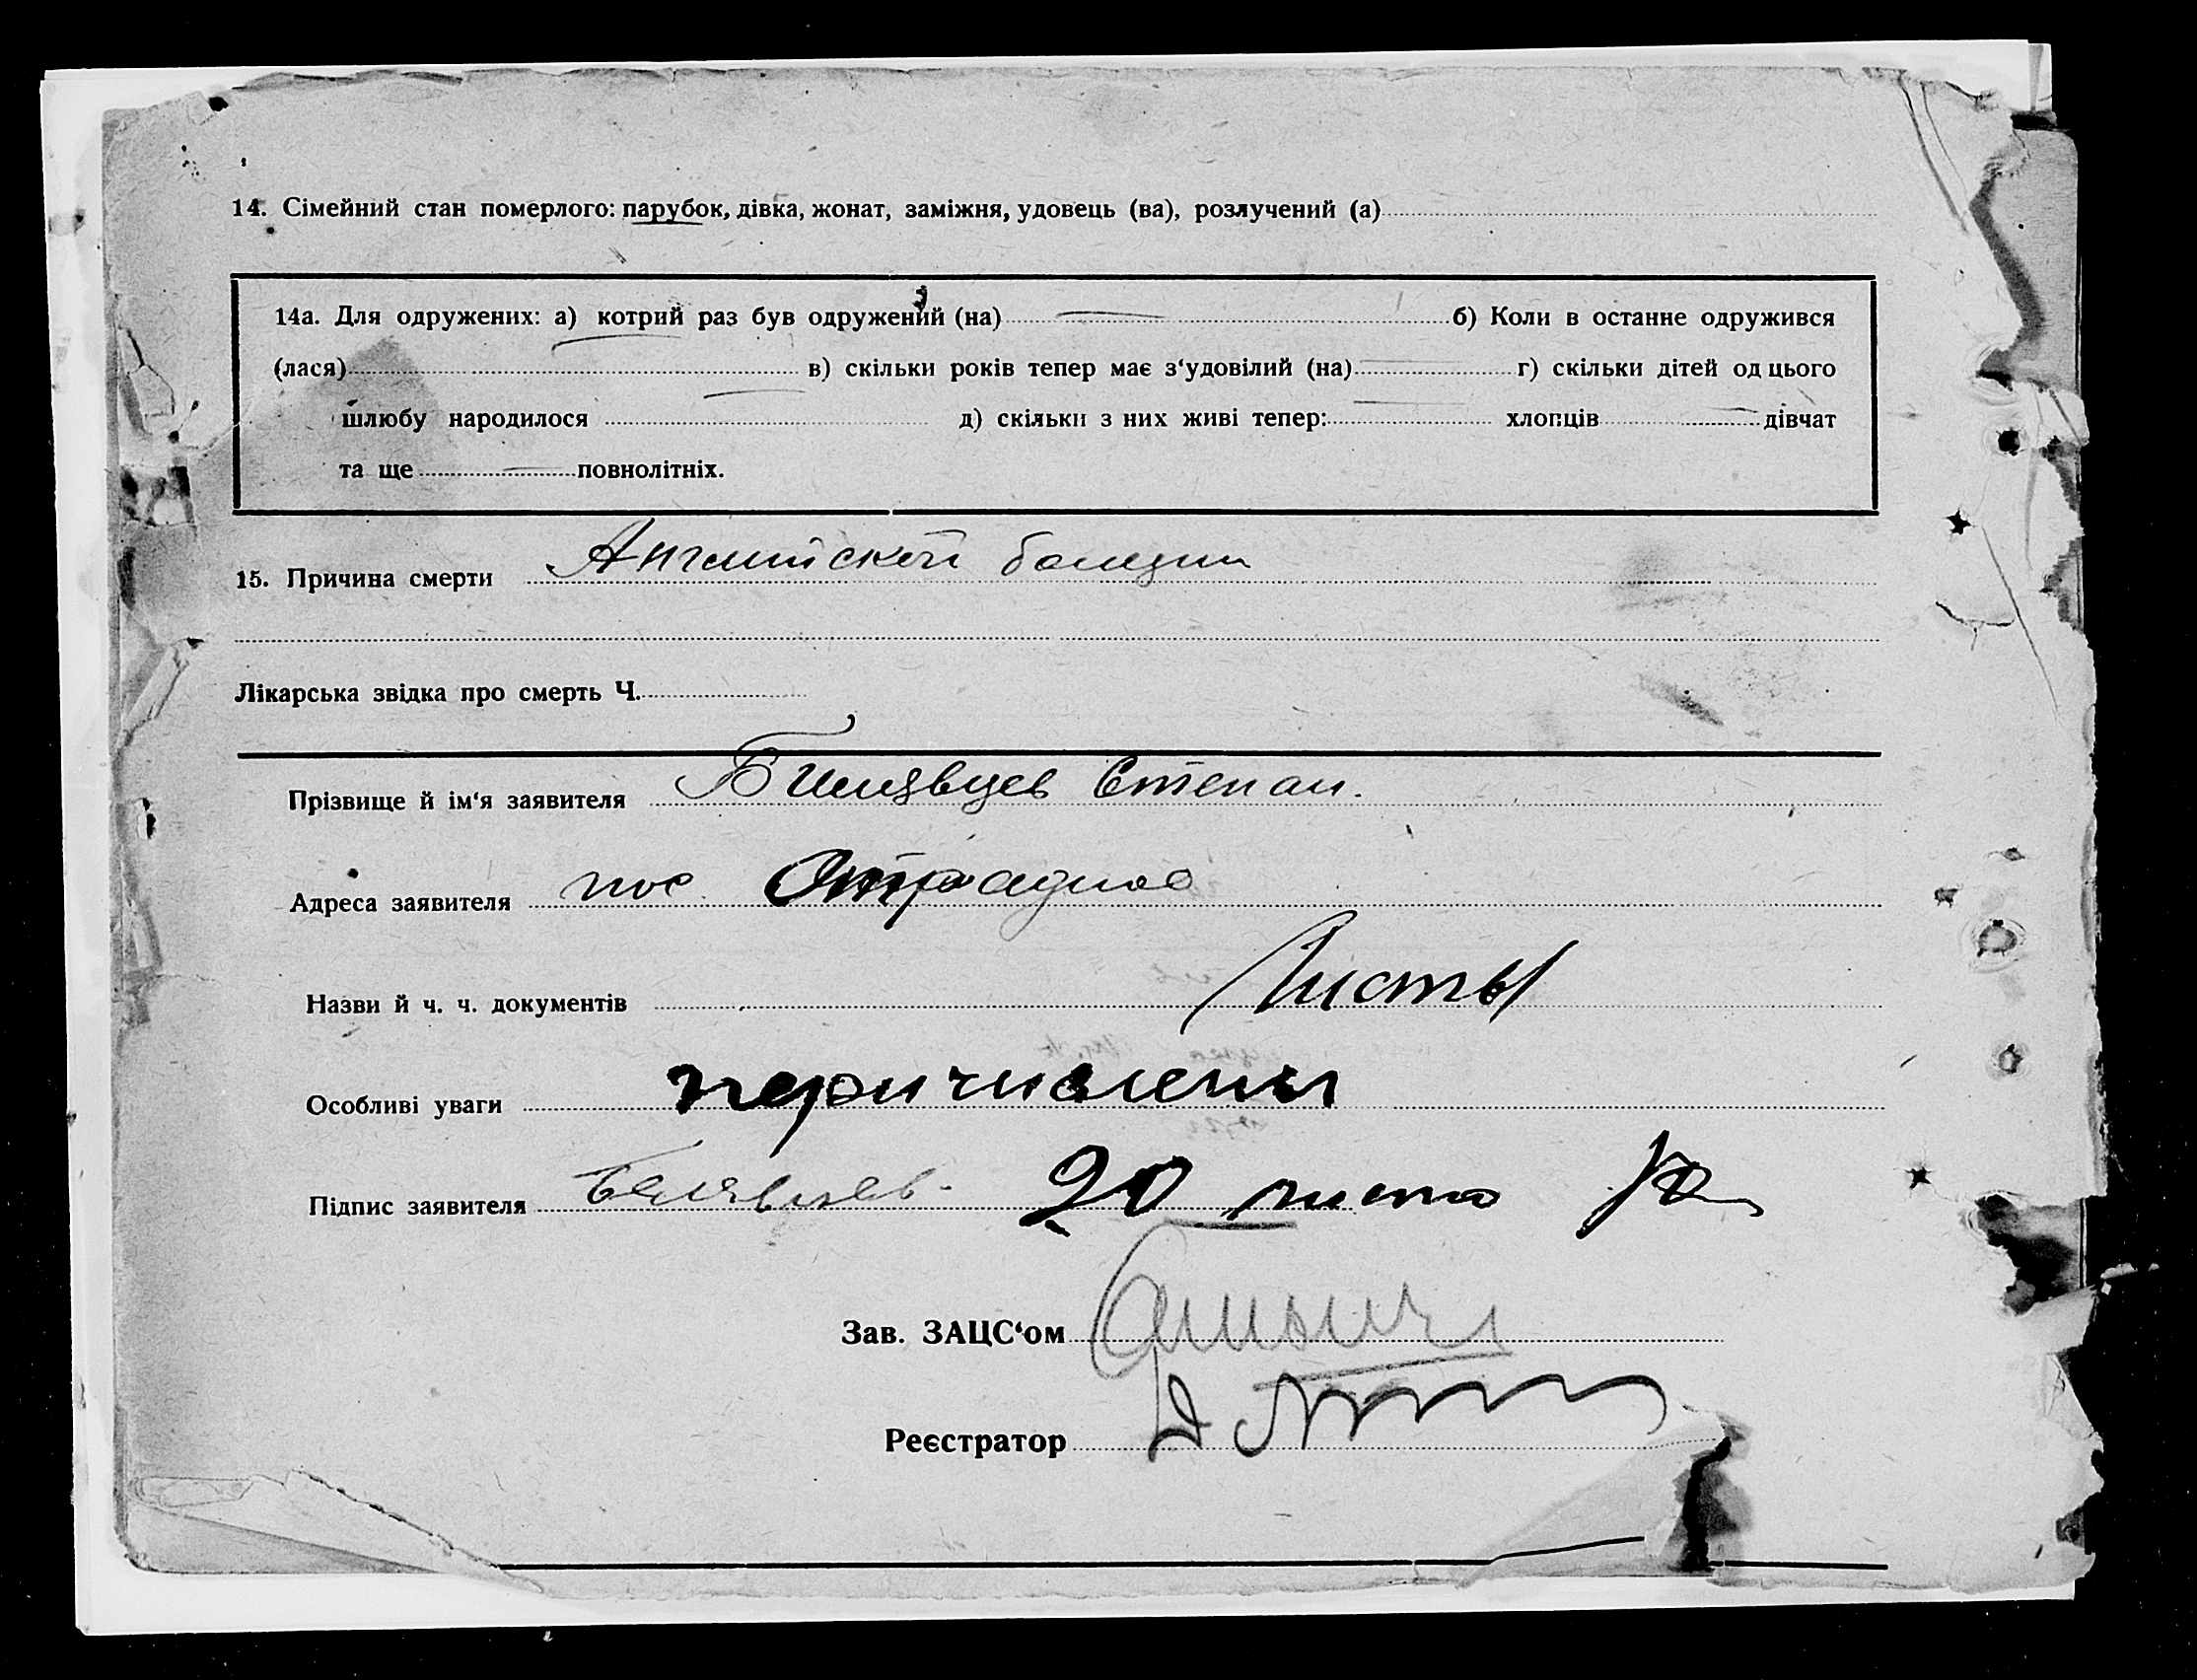 14. Сімейний стан померлого: парубок, дівка, жонат, заміжня, удовець (ва), розлучений (а)
14а. Для одружених: а) котрий раз був одружений (на) б) Коли в останне одружився
(лася) в) скільки років тепер має з‘удовілий (на) г) скільки дітей од цього
шлюбу народилося д) скільки з них живі тепер: хлопців дівчат
та ще повнолітніх.
15. Причина смерти Английской болезни
Лікарська звідка про смерть Ч.
Прізвище й ім‘я заявителя Билявцев Степан.
Адреса заявителя пос. Отрадное
Назви й ч. ч. документів Листы
Особливі уваги перичислены
Підпис заявителя Белявцев. 20 листо
Зав. ЗАЦС‘ом
Реєстратор